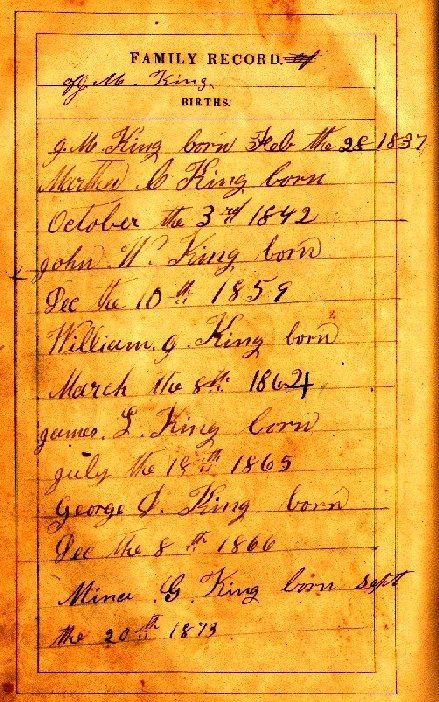 FAMILY RECORD. of
of J. M. King.
BIRTHS.
J. M. King born Feb the 28 1837
Marthu C King born
October the 3rd 1842
John W. King born
Dec the 10th 1859
William. J. King born
March the 8th 1864
James. L. King born
July the 18th 1865
George D. King born
Dec the 8th 1866
Miner G. King born Sept
the 20th 1873